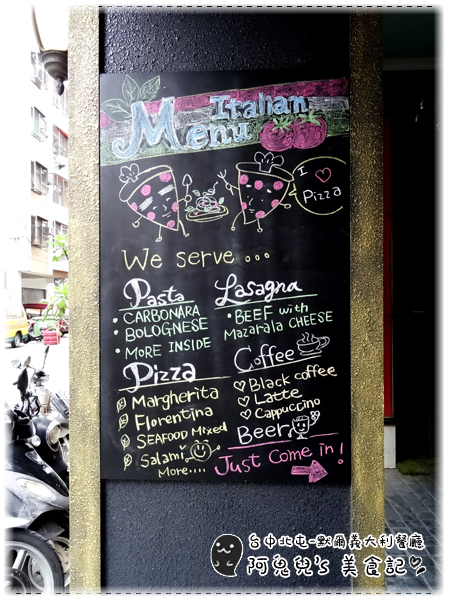 Italian
Menu
I ♡
Pizza
We serve ...
Pasta
• CARBONARA
• BOLOGNESE
• MORE INSIDE
Lasagna
• BEEF with
Mazarala CHEESE
Pizza
Margherita
Florentina
SEAFOOD Mixed
Salami
More....
Coffee
♡ Black coffee
♡ Latte
♡ Cappuccino
Beer
Just Come in!
台中北屯-默爾義大利餐廳
阿兔兒's 美食記